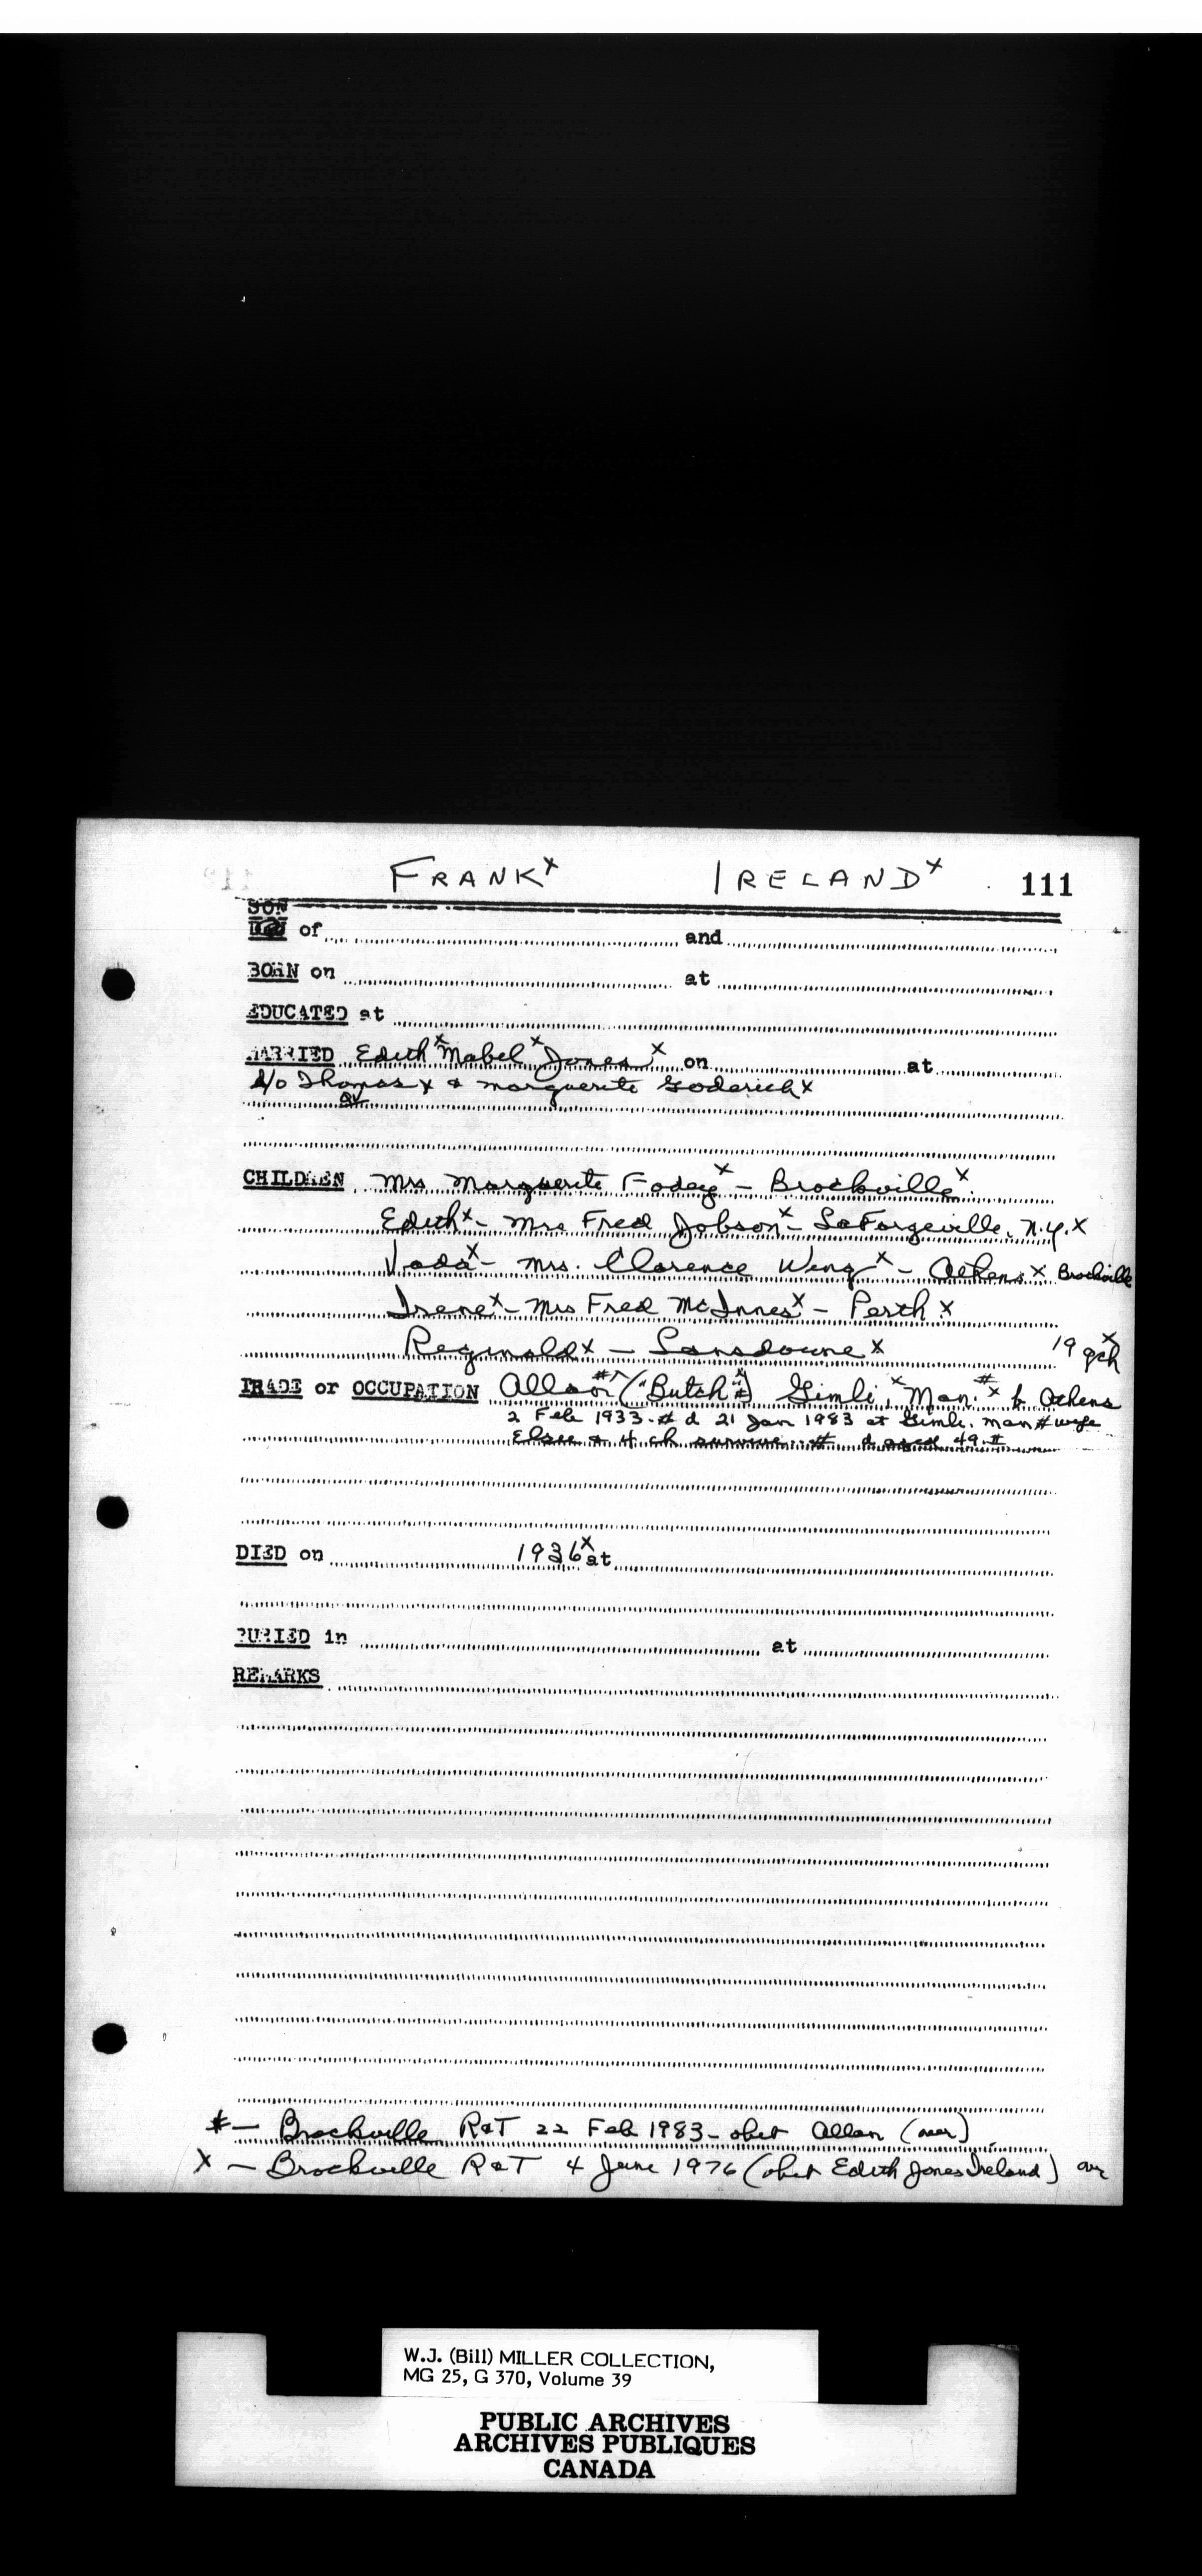 FRANK x IRELAND x 111
SON
of and
BORN on at
EDUCATED at
MARRIED Edith x Mabel x Jones x on at
d/o Thomas x & Marguerite Goderich x
CHILDREN Mrs Marguerite Fodey x - Brockville x.
Edith x - Mrs Fred Jobson x - LaFargeville, N.Y. x
Vada x - Mrs. Clarence Wing x - Athens x Brockville
Irene x - Mrs Fred McInnes x - Perth x
Reginald x - Lansdowne x 19 gch x
TRADE or OCCUPATION Allan # ("Butch" #) Gimli, x Man. # x b Athens
2 Feb 1933 # d 21 Jan 1983 at Gimli, Man # wife
Elsee & 4 ch survive # d aged 49 #
DIED on 1936 x at
BURIED in at
REMARKS
# - Brockville R&T 22 Feb 1983 - obit Allan (over)
x - Brockville R&T 4 June 1976 (obit Edith Jones Ireland) over
W.J. (Bill) MILLER COLLECTION,
MG 25, G 370, Volume 39
PUBLIC ARCHIVES
ARCHIVES PUBLIQUES
CANADA